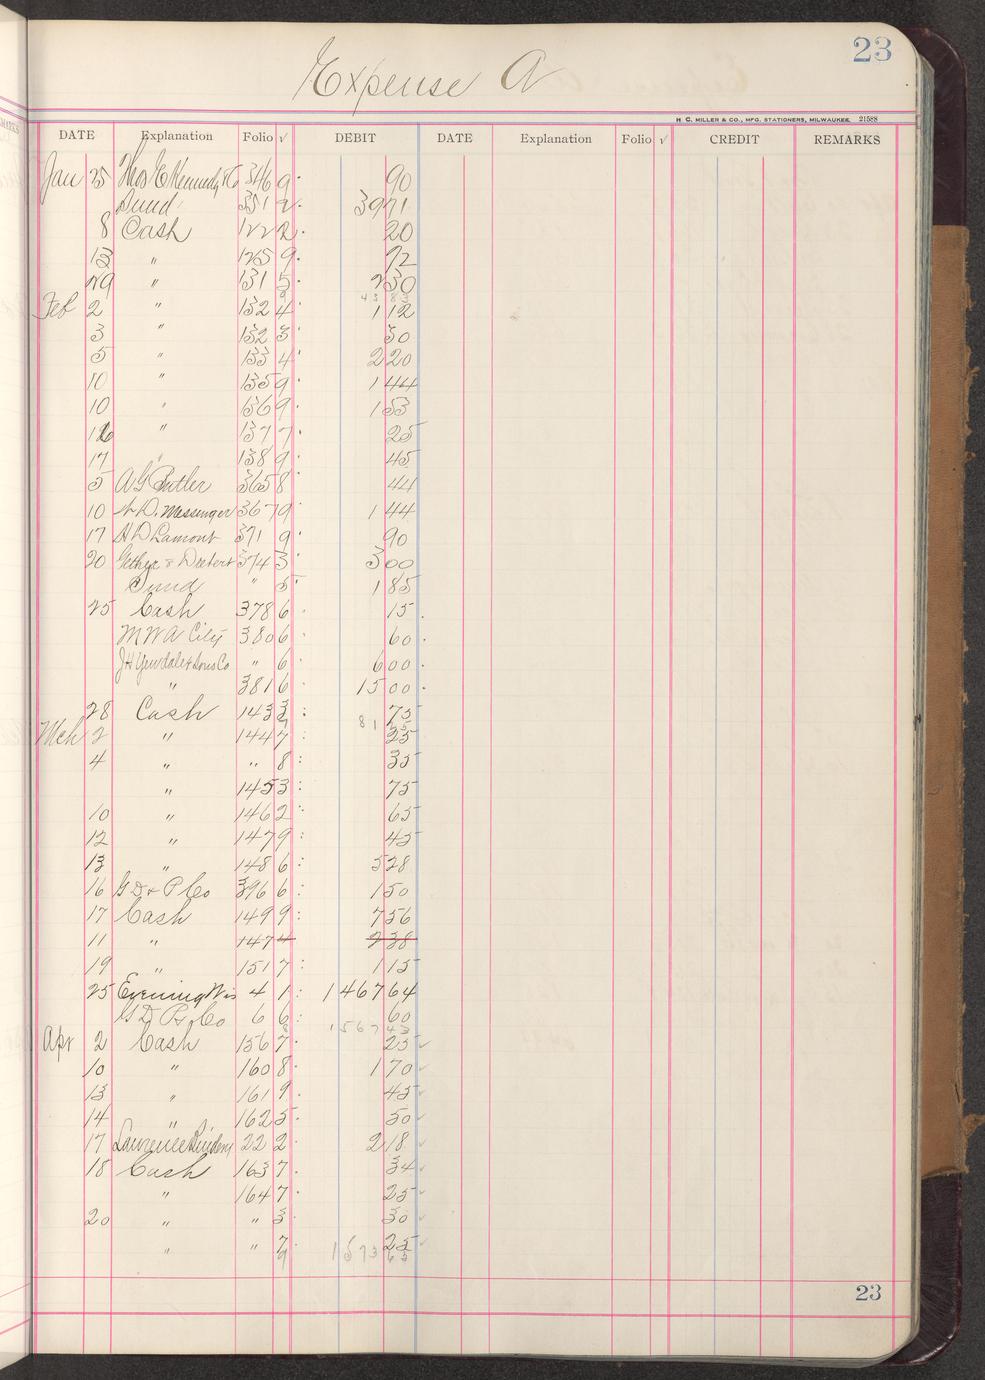 23
Expense A
H. C. MILLER & CO., MFG. STATIONERS, MILWAUKEE. 21588
DATE Explanation Folio √ DEBIT DATE Explanation Folio √ CREDIT REMARKS
Jan 25 Thos E Kennedy & Co 346 9 90
Sund 351 2 39 71
8 Cash 122 2 20
13 " 125 9 72
29 " 131 5 2 30
43 83
Feb 2 " 132 4 1 12
3 " 132 3 30
5 " 133 4 2 20
10 " 135 9 1 44
10 " 136 9 1 53
16 " 137 7 25
17 " 138 9 45
5 A G Butler 365 8 44
10 A. D. Messenger 367 9 1 44
17 H D Lamont 371 9 90
20 Gethea & Deetert 374 3 3 00
Sund " 5 1 85
25 Cash 378 6 15
M W A City 380 6 60
J H Yewdale & Sons Co " 6 6 00
" 381 6 15 00
28 Cash 143 3 75
81
Mch 2 " 144 7 25
4 " " 8 35
" 145 3 75
10 " 146 2 65
12 " 147 9 45
13 " 148 6 5 28
16 G D & P Co 396 6 1 50
17 Cash 149 9 7 56
11 " 147 4 2 38
19 " 151 7 1 15
25 Evening Wis 4 1 1 467 64
G D P & Co 6 6 60
1567 43
Apr 2 Cash 156 7 25
10 " 160 8 1 70
13 " 161 9 45
14 " 162 5 50
17 Lawrence 22 2 2 18
18 Cash 163 7 34
" 164 7 25
20 " " 3 30
" " 7 25
1573 65
23